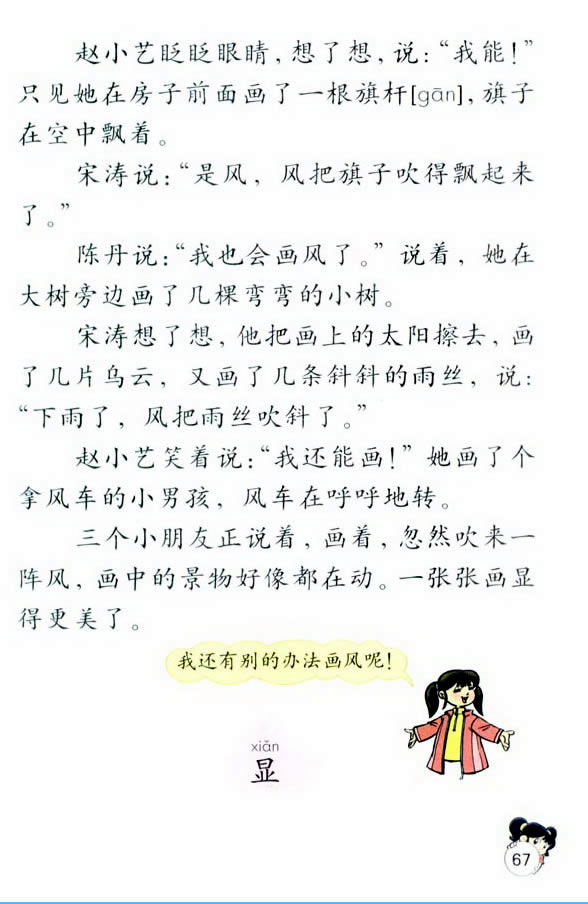 赵小艺眨眨眼睛，想了想，说：“我能！”
只见她在房子前面画了一根旗杆[gān]，旗子
在空中飘着。
宋涛说：“是风，风把旗子吹得飘起来
了。”
陈丹说：“我也会画风了。”说着，她在
大树旁边画了几棵弯弯的小树。
宋涛想了想，他把画上的太阳擦去，画
了几片乌云，又画了几条斜斜的雨丝，说：
“下雨了，风把雨丝吹斜了。”
赵小艺笑着说：“我还能画！”她画了个
拿风车的小男孩，风车在呼呼地转。
三个小朋友正说着，画着，忽然吹来一
阵风，画中的景物好像都在动。一张张画显
得更美了。
我还有别的办法画风呢！
xiǎn
显
67